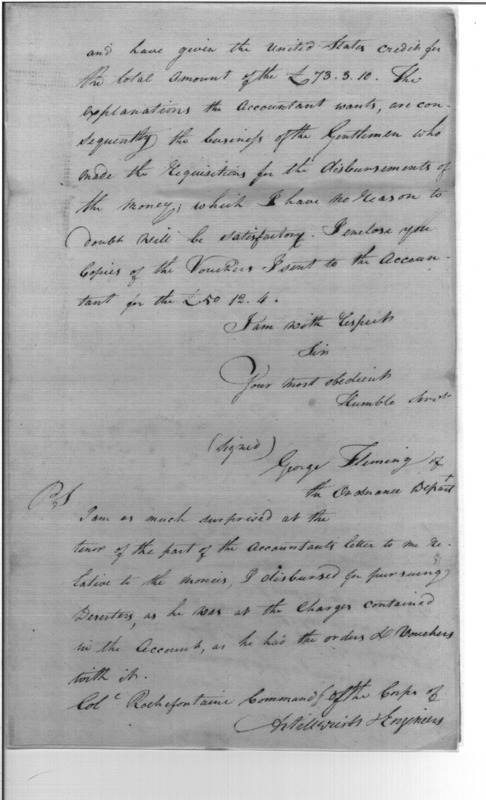 and have given the United States credit for
the total Amount of the £73.3.10. The
explanations the Accountant wants, are con-
sequently the business of the Gentlemen who
made the Requisitions for the disbursements of
the Money; which I have no reason to
doubt will be satisfactory. I enclose you
Copies of the Vouchers I sent to the Accoun-
tant for the £50.12.4.
I am with Respects
Sir
Your most obedient
Humble Servt
(Signed)
George Fleming of
the Ordnance Depart
PS
I am as much surprised at the
tenor of the part of the Accountants letter to me Re-
lative to the monies, I disbursed for pursueing
Deserters, as he was at the Charges contained
in the Account, as he had the orders & Vouchers
with it.
Colc Rochefontaine Commandt of the Corps of
Artillerists & Engineers